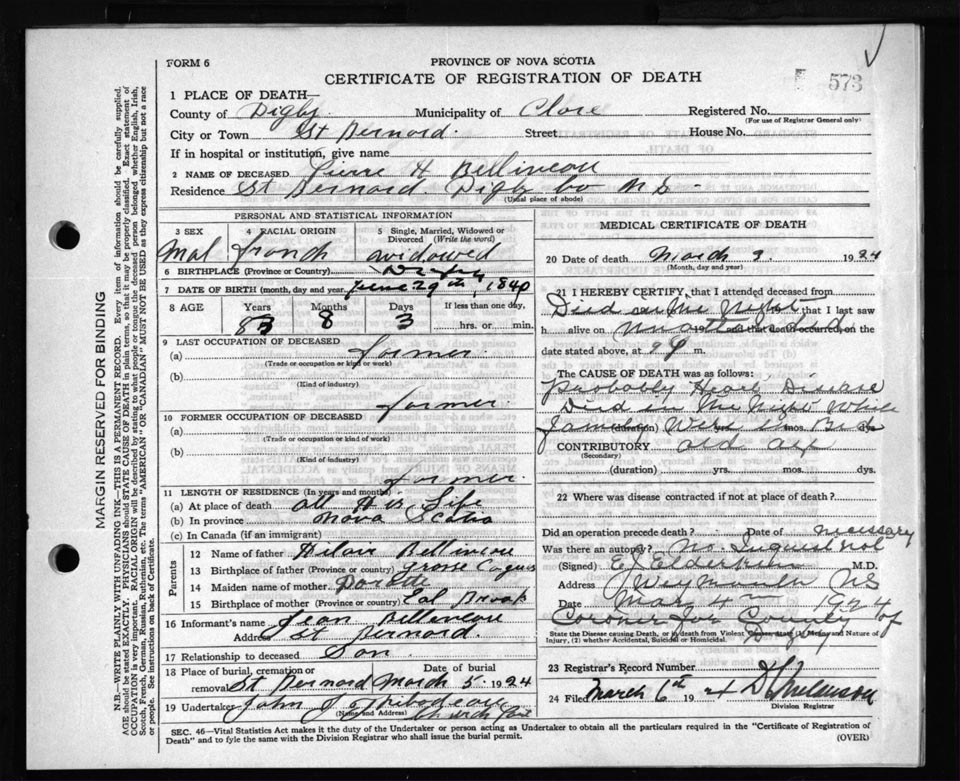 FORM 6
PROVINCE OF NOVA SCOTIA
CERTIFICATE OF REGISTRATION OF DEATH
573
1 PLACE OF DEATH—
County of Digby. Municipality of Clare Registered No.
(For use of Registrar General only)
City or Town St Bernard. Street House No.
If in hospital or institution, give name
2 NAME OF DECEASED Pierre H Belliveau
Residence St Bernard Digby Co N S
(Usual place of abode)
PERSONAL AND STATISTICAL INFORMATION
3 SEX 4 RACIAL ORIGIN 5 Single, Married, Widowed or Divorced (Write the word)
Mal french widowed
6 BIRTHPLACE (Province or Country) Digby
7 DATE OF BIRTH (month, day and year) June 29th, 1840
8 AGE Years Months Days If less than one day,
83 8 3 hrs. or min.
9 LAST OCCUPATION OF DECEASED
(a) farmer.
(Trade or occupation or kind of work)
(b)
(Kind of industry)
farmer.
10 FORMER OCCUPATION OF DECEASED
(a)
(Trade or occupation or kind of work)
(b)
(Kind of industry)
farmer.
11 LENGTH OF RESIDENCE (In years and months)
(a) At place of death all His Life
(b) In province Nova Scotia
(c) In Canada (if an immigrant)
Parents
12 Name of father Hilair Belliveau
13 Birthplace of father (Province or country) Grosse Coques
14 Maiden name of mother
15 Birthplace of mother (Province or country) Eel Brook
16 Informant's name Jean Belliveau
Address St Bernard.
17 Relationship to deceased Son.
18 Place of burial, cremation or removal Date of burial
St Bernard March 5. 1924
19 Undertaker John J
(Name and Address) Church Point
MEDICAL CERTIFICATE OF DEATH
20 Date of death March 3. 1924
(Month, day and year)
21 I HEREBY CERTIFY, that I attended deceased from
Died in the Night that I last saw
h alive on 192 and that death occurred, on the
date stated above, at m.
The CAUSE OF DEATH was as follows:
Probably Heart Disease
Died in the Night while
(duration) yrs. mos. dys.
CONTRIBUTORY old age
(Secondary)
(duration) yrs. mos. dys.
22 Where was disease contracted if not at place of death?
Did an operation precede death? Date of necessary
Was there an autopsy? No. Inquest not
(Signed) E Elderkin M.D.
Address Weymouth NS
Date Mar 4th 1924
Coroner for County of Digby
State the Disease causing Death, or, in death from Violent Causes, state (1) Means and Nature of Injury, (2) whether Accidental, Suicidal or Homicidal.
23 Registrar's Record Number
24 Filed March 6th 1924
Division Registrar
SEC. 46—Vital Statistics Act makes it the duty of the Undertaker or person acting as Undertaker to obtain all the particulars required in the "Certificate of Registration of
Death" and to fyle the same with the Division Registrar who shall issue the burial permit. (OVER)
MARGIN RESERVED FOR BINDING
N.B.—WRITE PLAINLY WITH UNFADING INK—THIS IS A PERMANENT RECORD. Every item of information should be carefully supplied.
AGE should be stated EXACTLY. PHYSICIANS should STATE CAUSE OF DEATH in plain terms, so that it may be properly classified. Exact statement of
OCCUPATION is very important. RACIAL ORIGIN will be described by stating to what people or tongue the deceased person belonged whether English, Irish,
Scotch, French, German, Russian, Ruthenian, etc. The terms "AMERICAN" or "CANADIAN" MUST NOT BE USED as they express citizenship but not a race
or people. See instructions on back of Certificate.